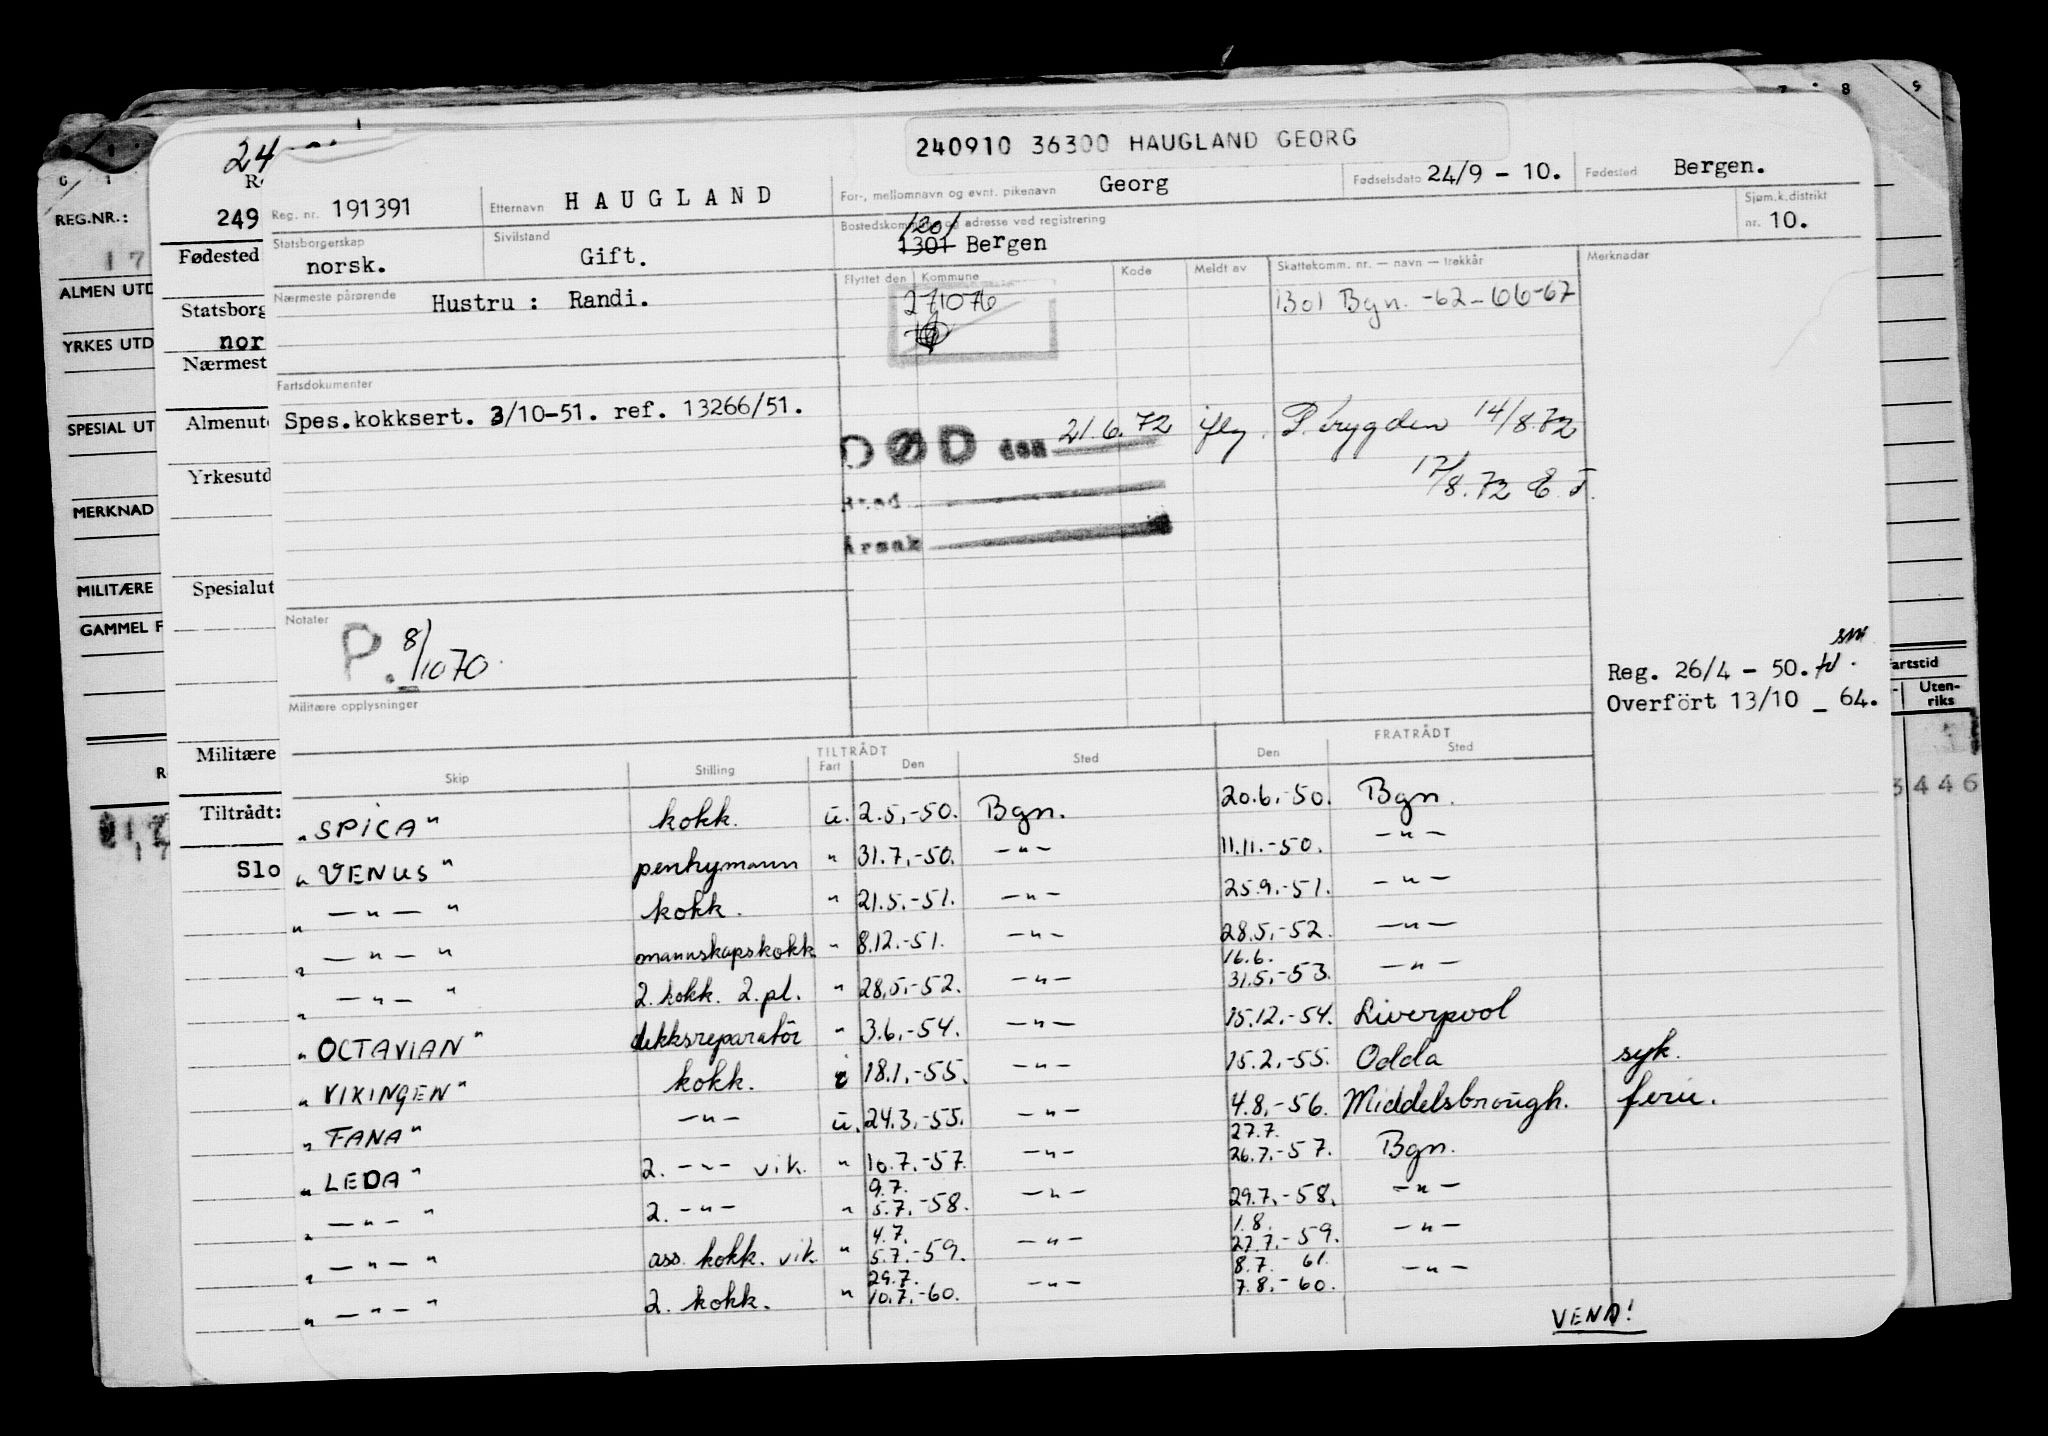 240910 36300 HAUGLAND GEORG
24
Reg. nr. 191391 Etternavn HAUGLAND For-, mellomnavn og evnt. pikenavn Georg Fødselsdato 24/9 - 10. Fødested Bergen.
REG.NR.: 249
Statsborgerskap norsk. Sivilstand Gift. Bostedskommune og adresse ved registrering 1201 1301 Bergen Sjøm.k.distrikt nr. 10.
Fødested
17
ALMEN UTD
Nærmeste pårørende Hustru : Randi. Flyttet den Kommune Kode Meldt av Skattekomm. nr. — navn — trekkår Merknader
Statsborg
271076 1301 Bgn. -62-66-67
YRKES UTD nor
Nærmest
Fartsdokumenter
SPESIAL UT Almenut Spes.kokksert. 3/10-51. ref. 13266/51.
DØD den 21.6.72 iflg. P. trygden 14/8.72
Yrkesutd
Sted 17/8.72 E.T.
MERKNAD
Årsak
MILITÆRE Spesialut
GAMMEL F
Notater
P. 8/10 70
Reg. 26/4 - 50.
Overført 13/10 _ 64.
artstid
Uten-
riks
Militære opplysninger
Militære
TILTRÅDT FRATRÅDT
Skip Stilling Fart Den Sted Den Sted
3446
Tiltrådt:
"SPICA" kokk. u. 2.5.-50. Bgn. 20.6.-50. Bgn.
Slo
"VENUS" pentrymann " 31.7.-50. -"- 11.11.-50. -"-
" -"- " kokk. " 21.5.-51. -"- 25.9.-51. -"-
" -"- " mannskapskokk " 8.12.-51. -"- 28.5.-52. -"-
16.6.
" -"- " 2. kokk. 2.pl. " 28.5.-52. -"- 31.5.-53. -"-
"OCTAVIAN" dekksreparatör " 3.6.-54. -"- 15.12.-54. Liverpool
"VIKINGEN" kokk. i 18.1.-55. -"- 15.2.-55. Odda syk.
"FANA" -"- u. 24.3.-55. -"- 4.8.-56. Middelsbrough. ferie.
27.7.
"LEDA" 2. -"- vik. " 10.7.-57. -"- 26.7.-57. Bgn.
9.7.
" -"- " 2. -"- " 5.7.-58. -"- 29.7.-58. -"-
4.7. 1.8.
" -"- " ass. kokk. vik. " 5.7.-59. -"- 27.7.-59. -"-
29.7. 8.7. 61.
" -"- " 2. kokk. " 10.7.-60. -"- 7.8.-60. -"-
VEND!